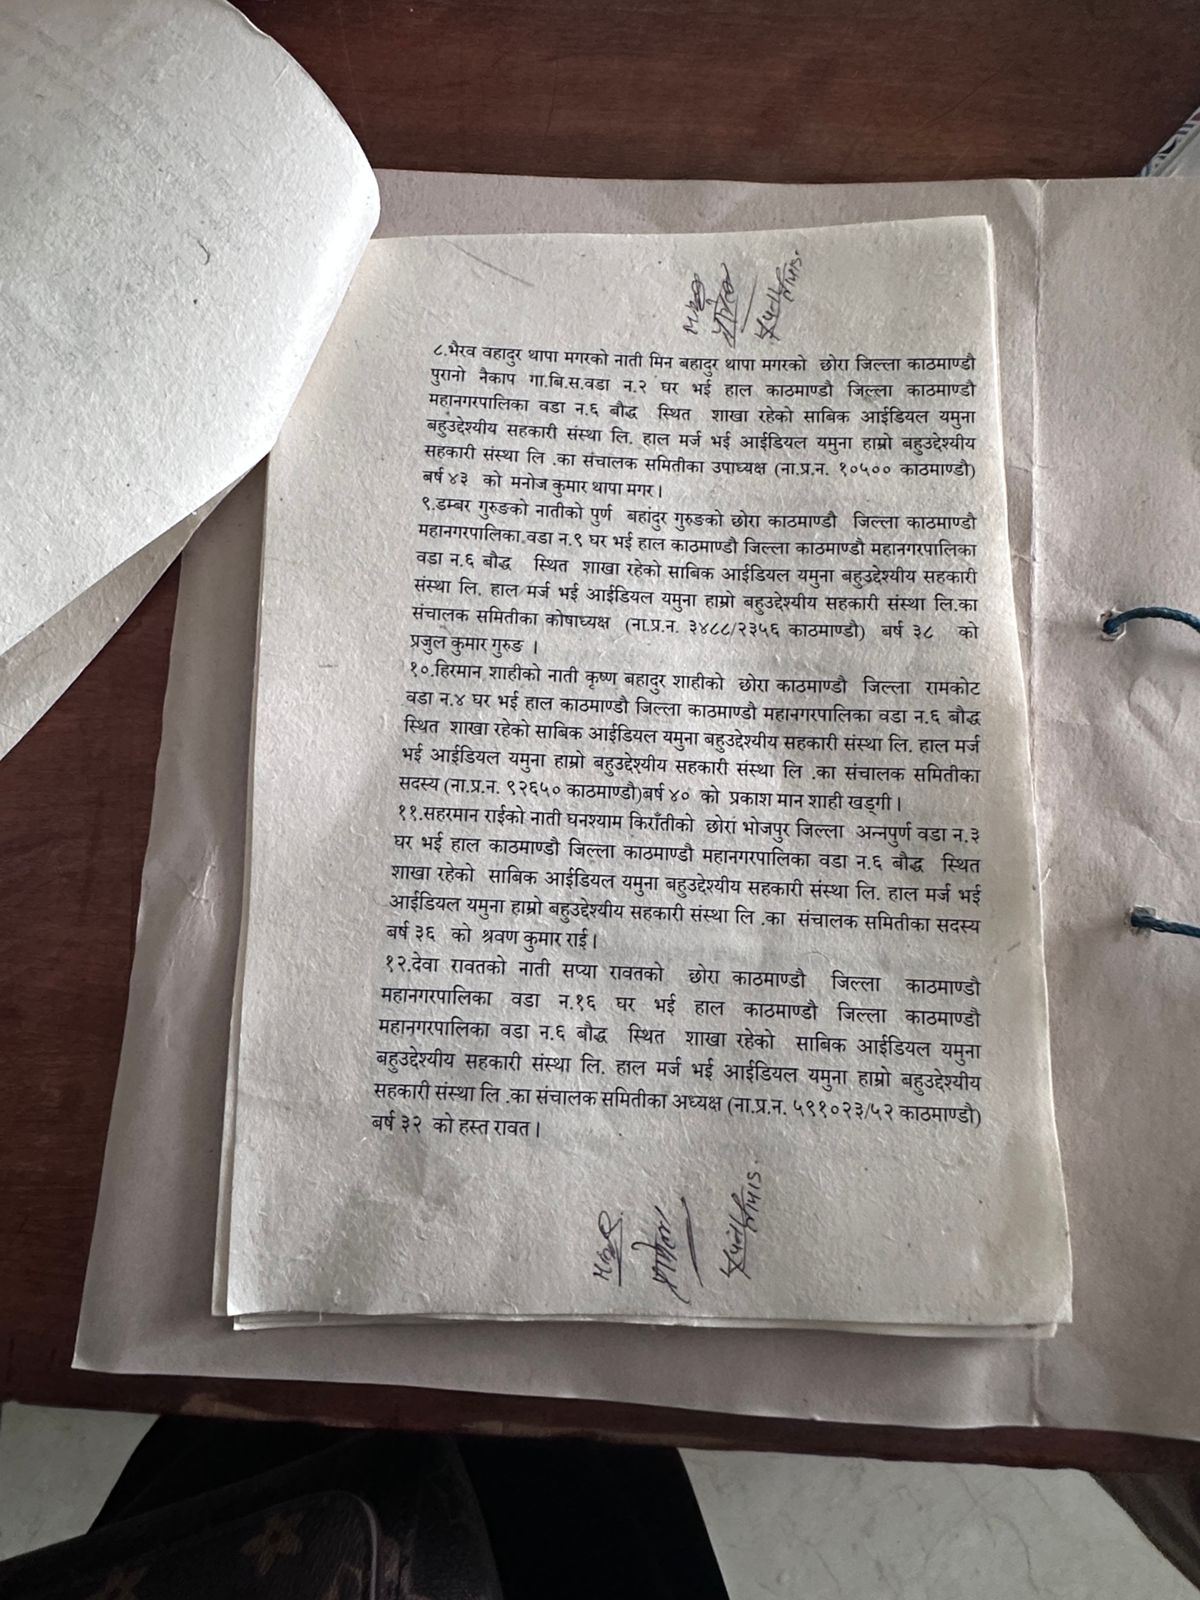 ८.भैरव वहादुर थापा मगरको नाती मिन बहादुर थापा मगरको छोरा जिल्ला काठमाण्डौ
पुरानो नैकाप गा.बि.स.वडा न.२ घर भई हाल काठमाण्डौ जिल्ला काठमाण्डौ
महानगरपालिका वडा न.६ बौद्ध स्थित शाखा रहेको साबिक आईडियल यमुना
बहुउद्देश्यीय सहकारी संस्था लि. हाल मर्ज भई आईडियल यमुना हाम्रो बहुउद्देश्यीय
सहकारी संस्था लि .का संचालक समितीका उपाध्यक्ष (ना.प्र.न. १०५०० काठमाण्डौ)
बर्ष ४३ को मनोज कुमार थापा मगर।
९.डम्बर गुरुङको नातीको पुर्ण बहादुर गुरुङको छोरा काठमाण्डौ जिल्ला काठमाण्डौ
महानगरपालिका वडा न.९ घर भई हाल काठमाण्डौ जिल्ला काठमाण्डौ महानगरपालिका
वडा न.६ बौद्ध स्थित शाखा रहेको साबिक आईडियल यमुना बहुउद्देश्यीय सहकारी
संस्था लि. हाल मर्ज भई आईडियल यमुना हाम्रो बहुउद्देश्यीय सहकारी संस्था लि.का
संचालक समितीका कोषाध्यक्ष (ना.प्र.न. ३४८८/२३५६ काठमाण्डौ) बर्ष ३८ को
प्रजुल कुमार गुरुङ ।
१०.हिरमान शाहीको नाती कृष्ण बहादुर शाहीको छोरा काठमाण्डौ जिल्ला रामकोट
वडा न.४ घर भई हाल काठमाण्डौ जिल्ला काठमाण्डौ महानगरपालिका वडा न.६ बौद्ध
स्थित शाखा रहेको साबिक आईडियल यमुना बहुउद्देश्यीय सहकारी संस्था लि. हाल मर्ज
भई आईडियल यमुना हाम्रो बहुउद्देश्यीय सहकारी संस्था लि .का संचालक समितीका
सदस्य (ना.प्र.न. ९२६५० काठमाण्डौ)बर्ष ४० को प्रकाश मान शाही खड्गी।
११.सहरमान राईको नाती घनश्याम किराँतीको छोरा भोजपुर जिल्ला अन्नपुर्ण वडा न.३
घर भई हाल काठमाण्डौ जिल्ला काठमाण्डौ महानगरपालिका वडा न.६ बौद्ध स्थित
शाखा रहेको साबिक आईडियल यमुना बहुउद्देश्यीय सहकारी संस्था लि. हाल मर्ज भई
आईडियल यमुना हाम्रो बहुउद्देश्यीय सहकारी संस्था लि .का संचालक समितीका सदस्य
बर्ष ३६ को श्रवण कुमार राई।
१२.देवा रावतको नाती सप्या रावतको छोरा काठमाण्डौ जिल्ला काठमाण्डौ
महानगरपालिका वडा न.१६ घर भई हाल काठमाण्डौ जिल्ला काठमाण्डौ
महानगरपालिका वडा न.६ बौद्ध स्थित शाखा रहेको साबिक आईडियल यमुना
बहुउद्देश्यीय सहकारी संस्था लि. हाल मर्ज भई आईडियल यमुना हाम्रो बहुउद्देश्यीय
सहकारी संस्था लि .का संचालक समितीका अध्यक्ष (ना.प्र.न. ५९१०२३/५२ काठमाण्डौ)
बर्ष ३२ को हस्त रावत।